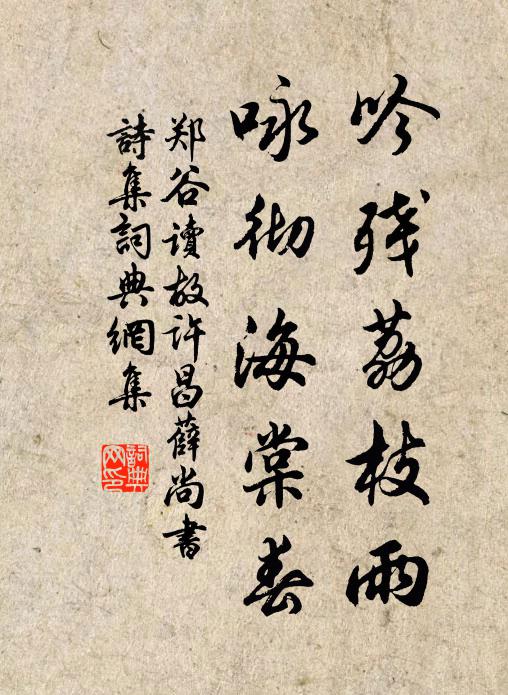 吟残荔枝雨
咏彻海棠春
郑谷读故许昌薛尚书
詩集詞典網集
詞典网印